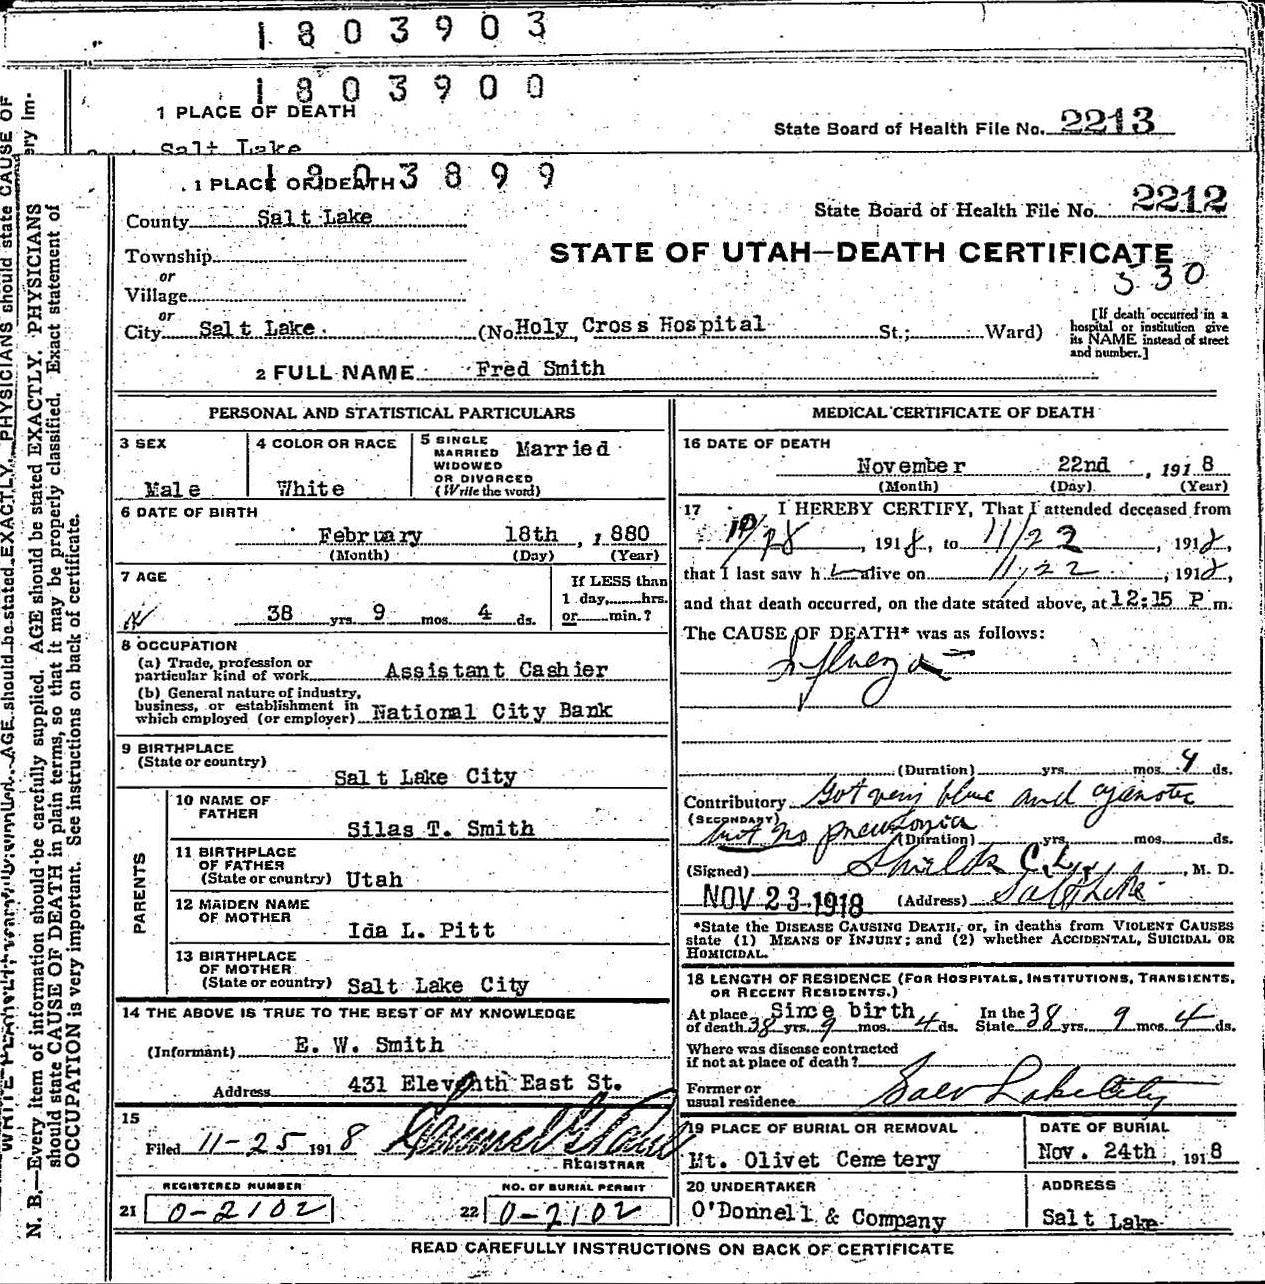 1803903
1803900
1 PLACE OF DEATH
State Board of Health File No. 2213
Salt Lake
1803899
1 PLACE OF DEATH
State Board of Health File No. 2212
County Salt Lake
STATE OF UTAH—DEATH CERTIFICATE
Township
530
or
Village
or
City Salt Lake. (No Holy Cross Hospital St.; Ward)
[If death occurred in a
hospital or institution give
its NAME instead of street
and number.]
2 FULL NAME Fred Smith
PERSONAL AND STATISTICAL PARTICULARS
3 SEX
Male
4 COLOR OR RACE
White
5 SINGLE
MARRIED
WIDOWED
OR DIVORCED
(Write the word)
Married
6 DATE OF BIRTH
February 18th, 1880
(Month) (Day) (Year)
7 AGE
38 yrs. 9 mos. 4 ds.
If LESS than
1 day, hrs.
or min.?
8 OCCUPATION
(a) Trade, profession or
particular kind of work Assistant Cashier
(b) General nature of industry,
business, or establishment in
which employed (or employer) National City Bank
9 BIRTHPLACE
(State or country)
Salt Lake City
PARENTS
10 NAME OF
FATHER
Silas T. Smith
11 BIRTHPLACE
OF FATHER
(State or country) Utah
12 MAIDEN NAME
OF MOTHER
Ida L. Pitt
13 BIRTHPLACE
OF MOTHER
(State or country) Salt Lake City
14 THE ABOVE IS TRUE TO THE BEST OF MY KNOWLEDGE
(Informant) E. W. Smith
Address 431 Eleventh East St.
15
Filed 11-25 1918
REGISTRAR
REGISTERED NUMBER
21 0-2102
NO. OF BURIAL PERMIT
22 0-2102
MEDICAL CERTIFICATE OF DEATH
16 DATE OF DEATH
November 22nd, 1918
(Month) (Day) (Year)
17 I HEREBY CERTIFY, That I attended deceased from
, 1918, to 11/22, 1918,
that I last saw h alive on 11/22, 1918,
and that death occurred, on the date stated above, at 12:15 P m.
The CAUSE OF DEATH* was as follows:
Influenza
(Duration) yrs. mos. 4 ds.
Contributory Got very blue and cyanotic
(SECONDARY)
but no pneumonia
(Duration) yrs. mos. ds.
(Signed) Shields C.L., M. D.
NOV 23 1918 (Address) Salt Lake
*State the DISEASE CAUSING DEATH, or, in deaths from VIOLENT CAUSES
state (1) MEANS OF INJURY; and (2) whether ACCIDENTAL, SUICIDAL OR
HOMICIDAL.
18 LENGTH OF RESIDENCE (FOR HOSPITALS, INSTITUTIONS, TRANSIENTS,
OR RECENT RESIDENTS.)
Since birth
At place
of death 38 yrs. 9 mos. 4 ds.
In the
State 38 yrs. 9 mos. 4 ds.
Where was disease contracted
if not at place of death?
Former or
usual residence Salt Lake City
19 PLACE OF BURIAL OR REMOVAL
Mt. Olivet Cemetery
DATE OF BURIAL
Nov. 24th, 1918
20 UNDERTAKER
O'Donnell & Company
ADDRESS
Salt Lake
READ CAREFULLY INSTRUCTIONS ON BACK OF CERTIFICATE
N. B.—Every item of information should be carefully supplied. AGE should be stated EXACTLY. PHYSICIANS
should state CAUSE OF DEATH in plain terms, so that it may be properly classified. Exact statement of
OCCUPATION is very important. See instructions on back of certificate.
AGE should be stated EXACTLY. PHYSICIANS should state CAUSE OF